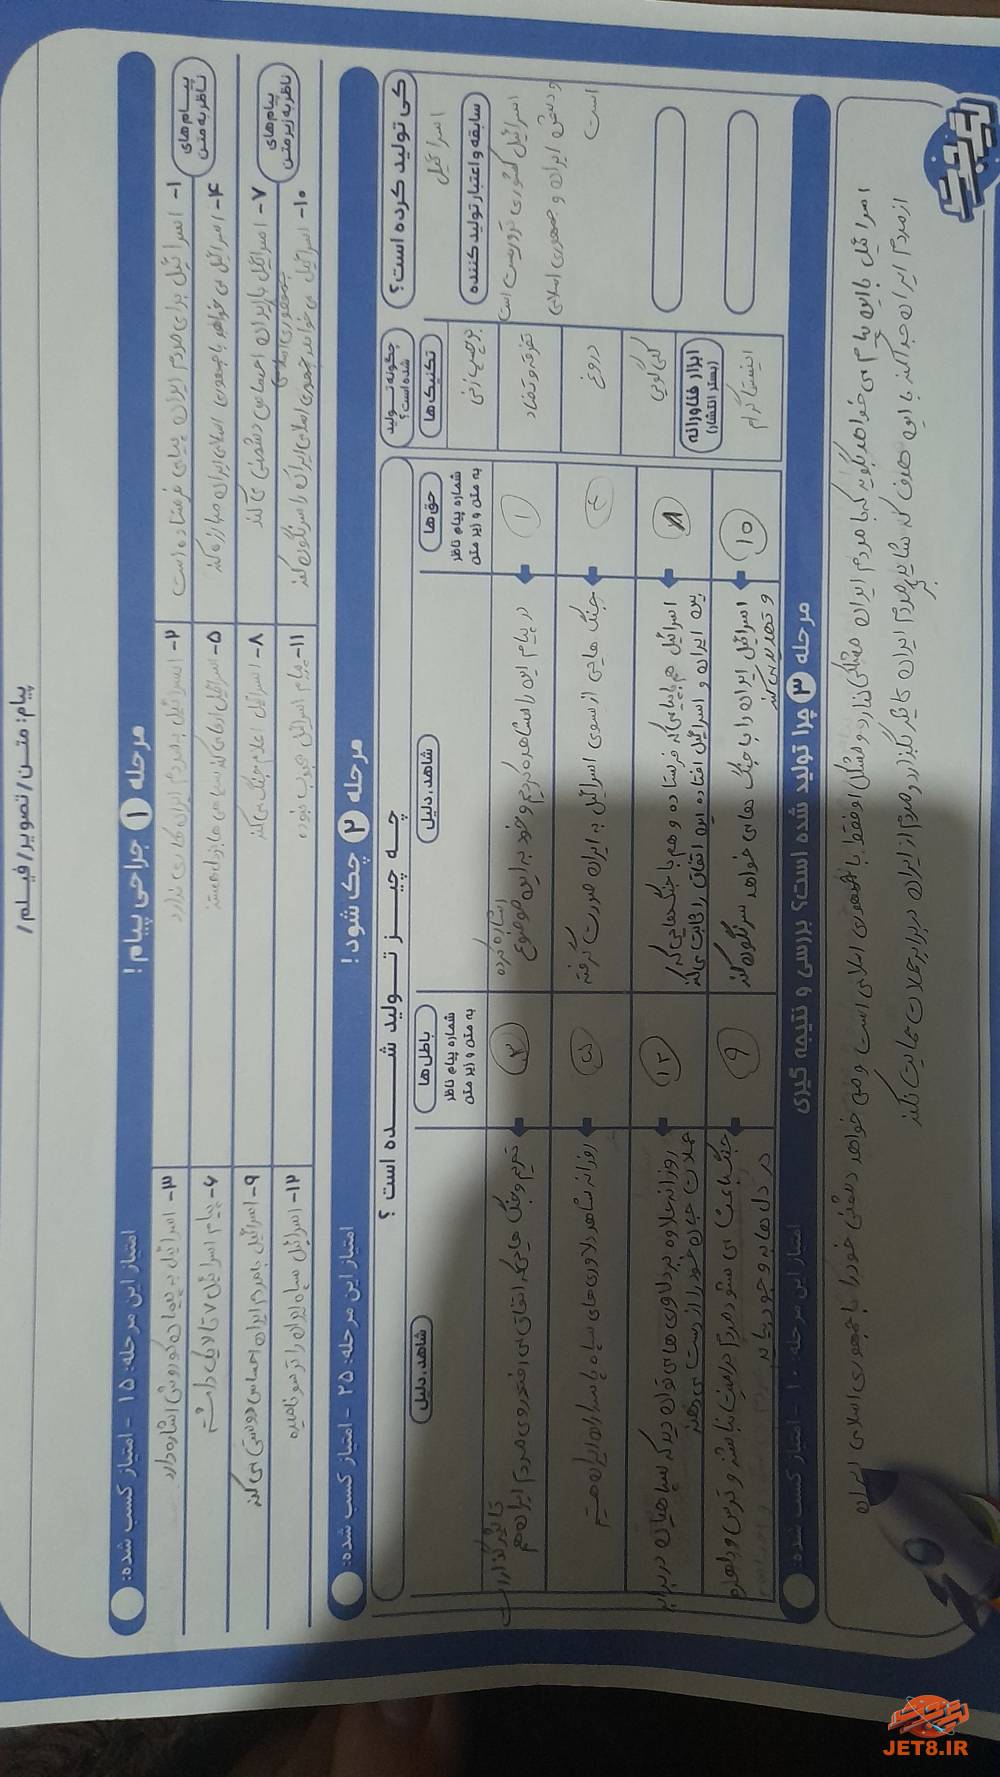 پیام: متن/ تصویر/ فیلم/
مرحله ۱ جراحی پیام!
امتیاز این مرحله: ۱۵ - امتیاز کسب شده:
پیام‌های ناظر به متن
۱- اسرائیل برای مردم ایران پیامی فرستاده است
۲- اسرائیل به مردم ایران کاری ندارد
۳- اسرائیل به پیمان کوروش اشاره دارد
۴- اسرائیل می خواهد با جمهوری اسلامی ایران مبارزه کند
۵- اسرائیل ادعا می کند سپاهی ها بزدل هستند
۶- پیام اسرائیل ۷ تا لایک داشته
پیام‌های ناظر به زیر متن
۷- اسرائیل با ایران احساس دشمنی می کند
جمهوری اسلامی
۸- اسرائیل اعلام جنگ می کند
۹- اسرائیل با مردم ایران احساس دوستی می کند
۱۰- اسرائیل می خواهد جمهوری اسلامی ایران را سرنگون کند
۱۱- پیام اسرائیل خوب نبوده
۱۲- اسرائیل سپاه ایران را ترسو نامیده
مرحله ۲ چک شود!
امتیاز این مرحله: ۲۵ - امتیاز کسب شده:
کی تولید کرده است؟
اسرائیل
سابقه و اعتبار تولید کننده
اسرائیل کشوری تروریست است
و دشمن ایران و جمهوری اسلامی
است
چگونه تولید شده است؟
تکنیک ها
برچسب زنی
تفرقه و تضاد
دروغ
کلی گویی
ابزار فناورانه (بستر انتشار)
اینستاگرام
چه چیز تولید شده است؟
حق ها
شماره پیام ناظر به متن و زیر متن
شاهد، دلیل
باطل ها
شماره پیام ناظر به متن و زیر متن
شاهد، دلیل
۱
در پیام این را مشاهده کردیم و خود به این موضوع
اشاره کرده
۲
تحریم و جنگ هایی که اتفاق می افتد روی مردم ایران هم
تاثیر گذار است
۴
جنگ هایی از سوی اسرائیل به ایران صورت گرفته
۵
روزانه شاهد دلاوری های سپاه پاسداران ایران هستیم
۸
اسرائیل هم با پیامی که فرستاده و هم با جنگ هایی که
بین ایران و اسرائیل افتاده این اتفاق را ثابت می کند
۱۲
روزانه علاوه بر دلاوری ها می توان دید که سپاهیان در برابر
حملات جان خود را از دست می دهند
۱۰
اسرائیل ایران را با جنگ هایی خواهد سرنگون کند
و تهدید می کند
۹
جنگ باعث می شود مردم در امنیت نباشند و ترس و دلهره
در دل ها به وجود بیاید
مرحله ۳ چرا تولید شده است؟ بررسی و نتیجه گیری
امتیاز این مرحله: ۱۰ - امتیاز کسب شده:
اسرائیل با این پیام می خواهد بگوید که با مردم ایران مشکلی ندارد و مشکل او فقط با جمهوری اسلامی است و می خواهد دشمنی خود را با جمهوری اسلامی ایران
از مردم ایران جدا کند با این هدف که شاید بر مردم ایران تاثیر بگذارد و مردم از ایران در برابر حملات حمایت نکنند
JET8.IR